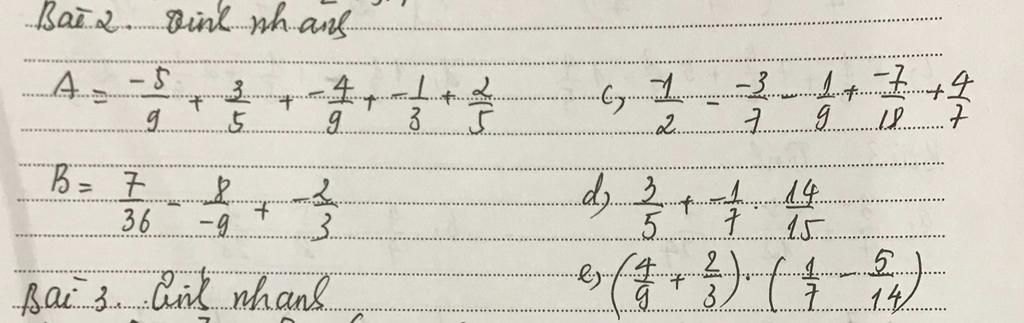 Bài 2. Tính nhanh
A = \frac{-5}{9} + \frac{3}{5} + \frac{-4}{9} + \frac{-1}{3} + \frac{2}{5}
c, \frac{-1}{2} - \frac{-3}{7} - \frac{1}{9} + \frac{-7}{18} + \frac{4}{7}
B = \frac{7}{36} - \frac{8}{-9} + \frac{-2}{3}
d, \frac{3}{5} + \frac{-1}{7} . \frac{14}{15}
e, (\frac{4}{9} + \frac{2}{3}) . (\frac{1}{7} - \frac{5}{14})
Bài 3. Tính nhanh